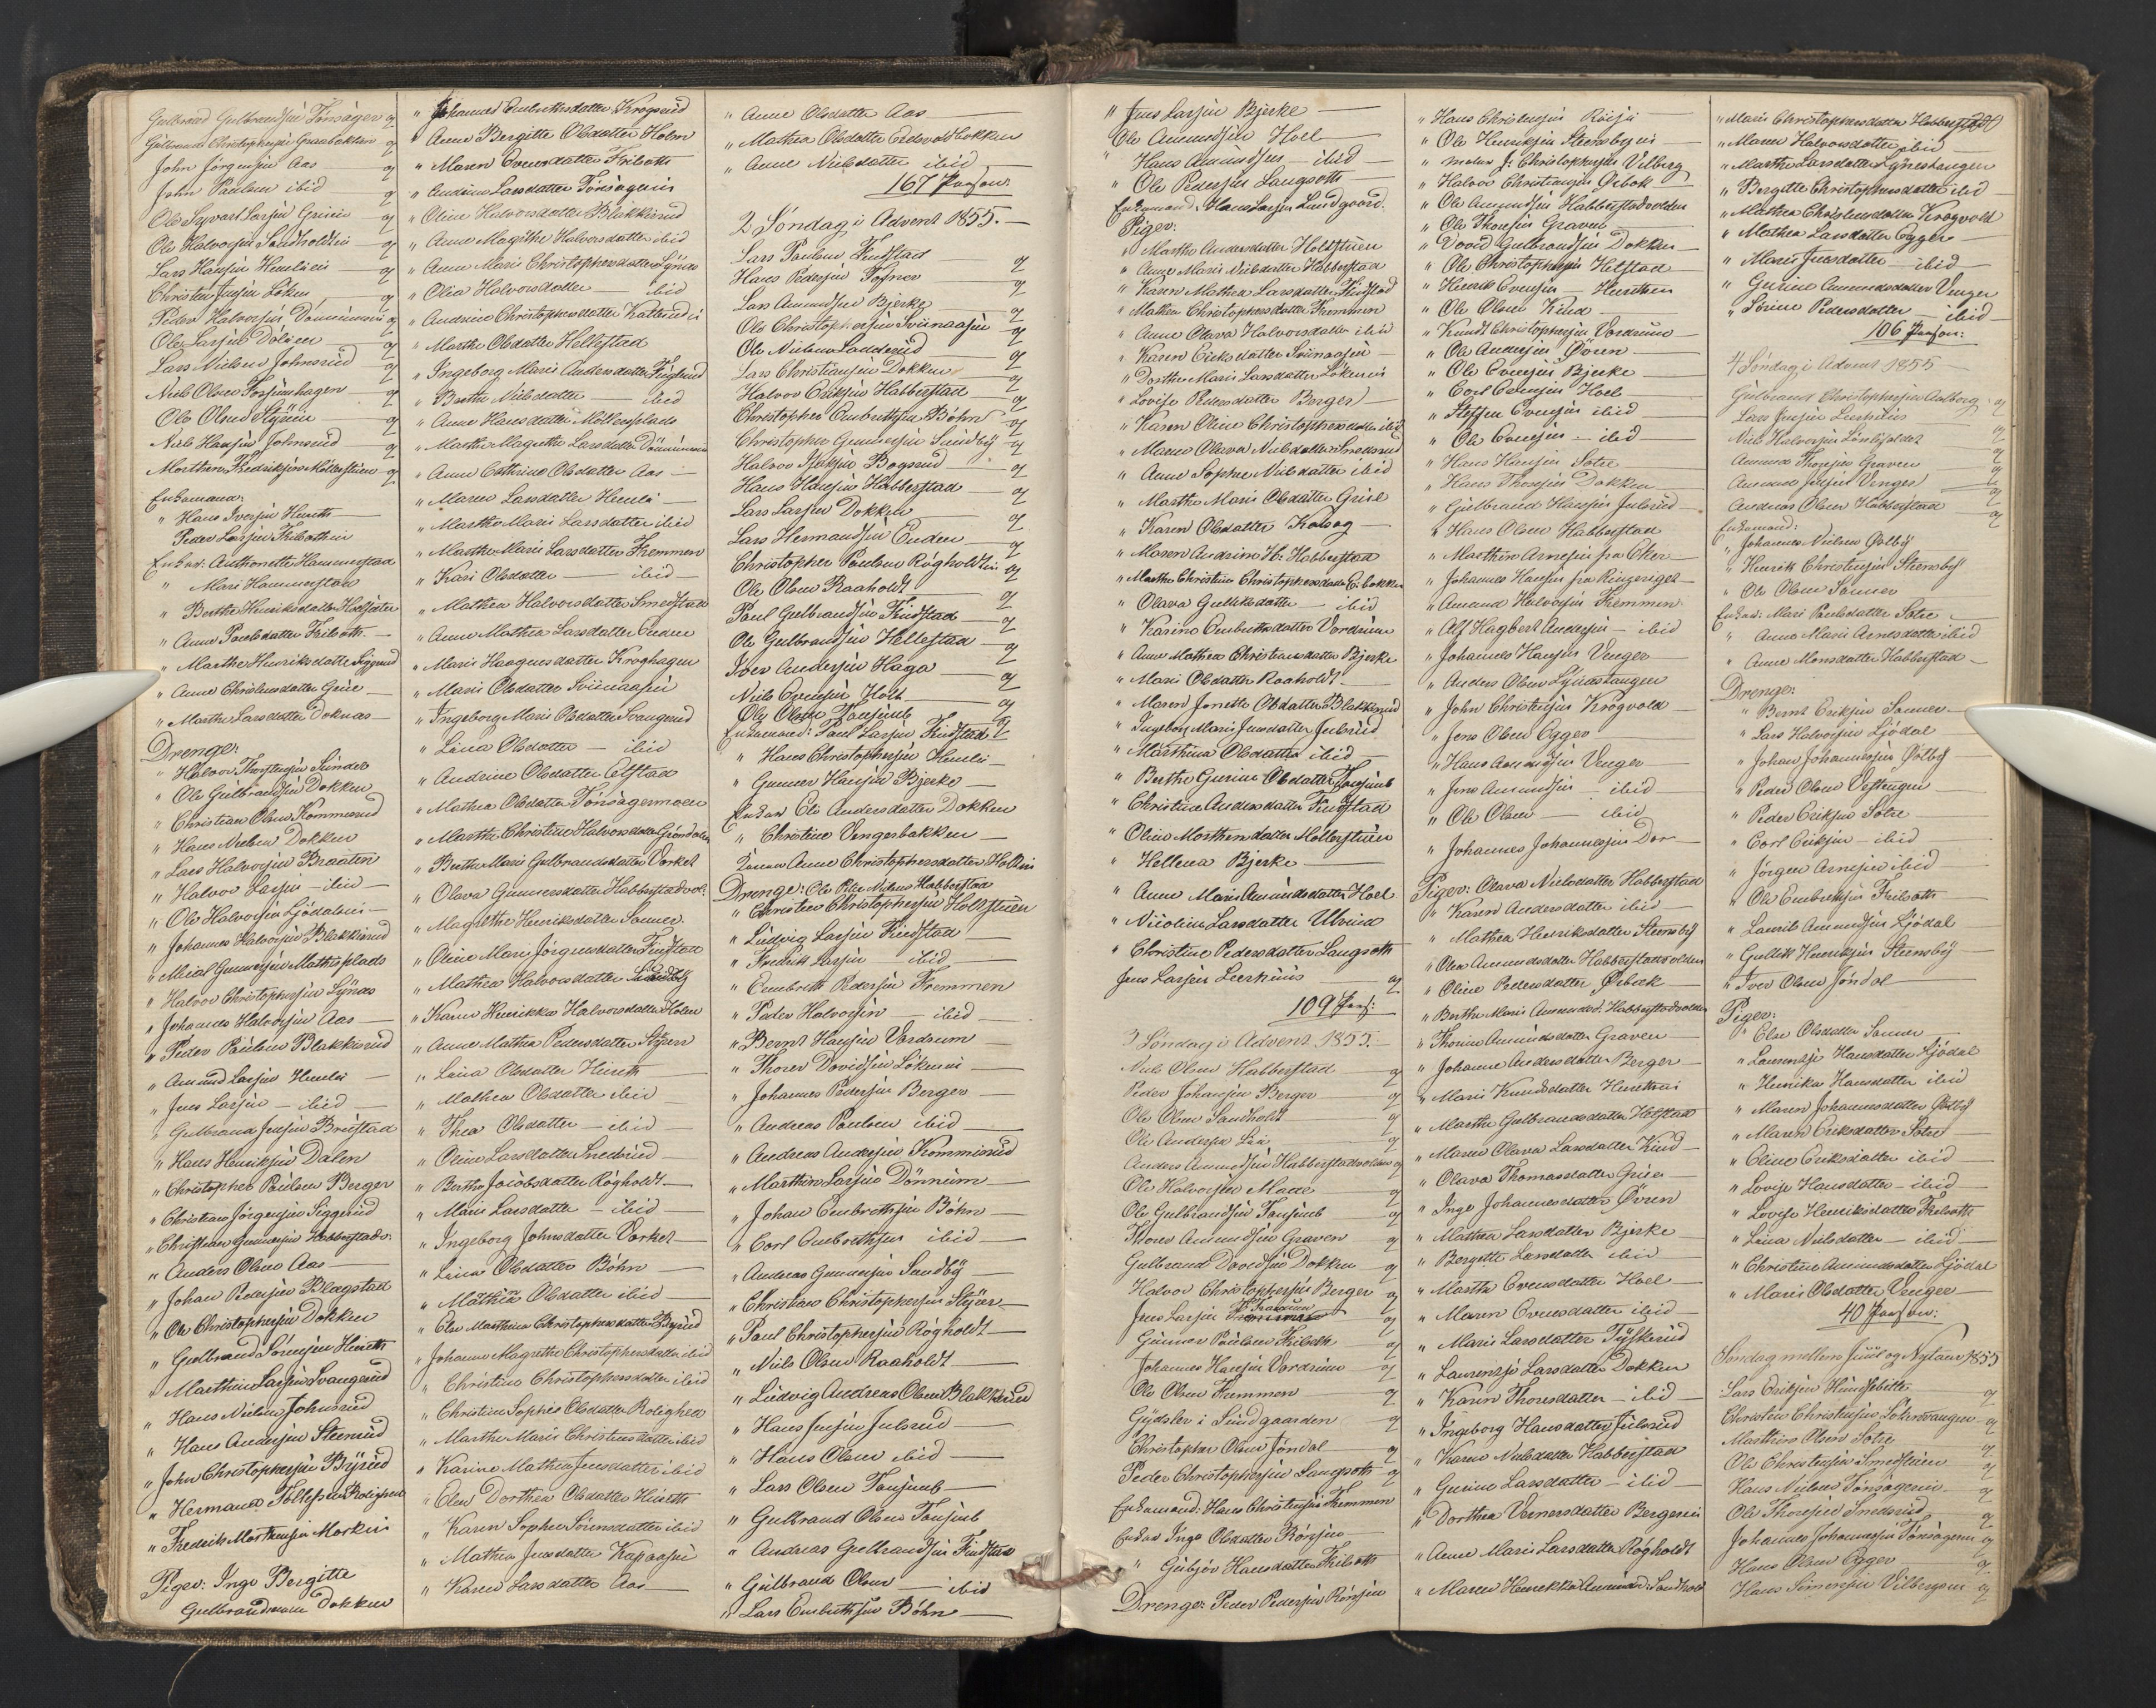 Gulbrand Gulbrandsen Tönsager q
Gulbrand Christophersen Graabakken q
John Jörgensen Aas q
John Paulsen ibid q
Ole Syvart Larsen Griein q
Ole Halvorsen Sandholdtein q
Lars Hansen Hemliein q
Christen Jensen Löken q
Peder Halvorsen q
Ole Larsen Dölien q
Lars Nielsen Johnsrud q
Niels Olsen Forsumhagen q
Ole Olsen Styrein q
Niels Hansen Johnsrud q
Marthin Fredriksen Möllerstuen q
Enkemænd:
" Hans Iversen Hureth
" Peder Larsen Frilsethein
Enker: Anthonette Hammerstad
" Mari Hammerstad
" Berthe Henriksdatter
" Anne Paulsdatter Frilseth
" Marthe Henriksdatter Siggerud
" Anne Christensdatter Grise
" Marthe Larsdatter Doknas
Drenge:
" Halvor Thorstensen Sundet
" Ole Gulbrandsen Dokken
" Christian Olsen Kommerud
" Hans Nielsen Dokken
" Lars Halvorsen Braaten
" Halvor Larsen ibid
" Ole Halvorsen Ljödalein
" Johannes Halvorsen Blakkisrud
" Micael Gunnersen Mathisplads
" Halvor Christophersen Lynæs
" Johannes Halvorsen Aas
" Peder Paulsen Blakkisrud
" Amund Larsen Hemli
" Jens Larsen ibid
" Gulbrand Jensen Brustad
" Hans Henriksen Dalen
" Christopher Paulsen Berger
" Christian Jörgensen Siggerud
" Christian Gunnersen Habberstadv:
" Anders Olsen Aas
" Johan Pedersen Blagstad
" Ole Christophersen Dokken
" Gulbrand Sörensen Hureth
" Marthin Larsen Svangerud
" Hans Nielsen Johnsrud
" Hans Andersen Steenrud
" John Christophersen Byrud
" Hermand Tollefsen Rolighed
" Fredrik Marthinsen Morkein
Piger: Inge Bergitte
Gulbrandsdatter Dokken
" Johanne Embrethsdatter Krogsrud
" Anne Bergitte Olsdatter Holm
" Maren Evensdatter Frilseth
" Andrine Larsdatter Tönsagerein
" Oline Halvorsdatter Blakkisrud
" Anne Magrethe Halvorsdatter ibid
" Anne Marie Christophersdatter Lynæs
" Olea Halvorsdatter ibid
" Andrine Christophersdatter Katterudei
" Marthe Olsdatter Hellestad
" Ingeborg Marie Andersdatter Fuglerud
" Berthe Nielsdatter ibid
" Anne Hansdatter Möllersplads
" Marthe Magrethe Larsdatter
" Anne Cathrine Olsdatter Aas
" Maren Larsdatter Hemli
" Marthe Marie Larsdatter ibid
" Marthe Marie Larsdatter Fremmen
" Kari Olsdatter ibid
" Mathea Halvorsdatter Smedstad
" Anne Mathea Larsdatter Enden
" Marie Haagensdatter Kroghagen
" Marie Olsdatter Sviinaasein
" Ingeborg Marie Olsdatter Svangerud
" Lina Olsdatter ibid
" Andrine Olsdatter Elstad
" Mathea Olsdatter Tönsagermoen
" Marthe Christine Halvorsdatter Gröndalen
" Berthe Marie Gulbrandsdatter Vorket
" Olava Gunnersdatter Habberstadvol:
" Magrethe Henriksdatter Sanner
" Oline Marie Jörgensdatter Findstad
" Mathea Halvorsdatter Sundby
" Karen Henrikke Halvorsdatter Holm
" Anne Mathea Pedersdatter Styren
" Lina Olsdatter Hureth
" Mathea Olsdatter ibid
" Thea Olsdatter ibid
" Oline Larsdatter Smedsrud
" Berthe Jacobsdatter Rögholdt
" Marie Larsdatter ibid
" Ingeborg Johnsdatter Vorket
" Lina Olsdatter Böhn
" Mathea Olsdatter ibid
" Else Marthea Christophersdatter Byrud
" Johanne Magrethe Christophersdatter ibid
" Christine Christophersdatter ibid
" Christine Sophie Olsdatter Rolighed
" Marthe Marie Christensdatter ibid
" Karine Mathea Jensdatter ibid
" Elen Dorthea Olsdatter Hureth
" Karen Sophie Sörensdatter ibid
" Mathea Jensdatter Kapaasen
" Karen Larsdatter Aas
" Anne Olsdatter Aas
" Mathea Olsdatter Eidsvoldbakken
" Anne Nielsdatter ibid
167 Person:
2 Söndag i Advent 1855.
Lars Paulsen Findstad q
Hans Pedersen Tosner q
Lars Amundsen Bjerke q
Ole Christophersen Sviinaasen q
Ole Nielsen Ladderud q
Lars Christiansen Dokken q
Halvor Eriksen Habberstad q
Christopher Embrethsen Böhn q
Christopher Gunnersen Sundby q
Halvor Bogsrud q
Hans Hansen Habberstad q
Lars Larsen Dokken q
Lars Hermandsen Enden q
Christopher Paulsen Rögholdtein q
Ole Olsen Raaholdt q
Paul Gulbrandsen Findstad q
Ole Gulbrandsen Hellestad q
Iver Andersen Haga q
Niels Evensen Holt q
Ole Olsen Tansumb q
Enkemænd: Paul Larsen Findstad q
" Hans Christophersen Hemli
" Gunner Hansen Bjerke
Enker Eli Andersdatter Dokken
" Christine Vengerbakken
Anne Christophersdatter Holtein
Drenge: Ole Peter Nielsen Habberstad
" Christen Christophersen Holtstuen
" Ludvig Larsen Findstad
" Fredrik Larsen ibid
" Embreth Pedersen Fremmen
" Peder Halvorsen ibid
" Bernt Hansen Vordrum
" Thorer Davidsen Lökenein
" Johannes Pedersen Berger
" Andreas Paulsen ibid
" Andreas Andersen Kommisrud
" Marthin Larsen Dönnum
" Johan Embrethsen Böhn
" Carl Embrethsen ibid
" Andreas Gunnersen Sundby
" Christian Christophersen Styrer
" Paul Christophersen Rögholdt
" Niels Olsen Raaholdt
" Ludvig Andreas Olsen Blakkisrud
" Hans Jensen Julsrud
" Hans Olsen ibid
" Lars Olsen Tansumb
" Gulbrand Olsen Tansumb
" Andreas Gulbrandsen Findstad
" Gulbrand Olsen ibid
" Lars Embrethsen Böhn
" Jens Larsen Bjerke
Ole Amundsen Hoel
" Hans Amundsen ibid
" Ole Pedersen Langseth
Enkemand: Hans Larsen Lundgaard.
Piger:
" Marthe Andersdatter Holdstuen
" Anne Marie Nielsdatter Habberstad
" Karen Mathea Larsdatter Findstad
" Mathea Christophersdatter Fremmen
" Anne Olava Halvorsdatter ibid
" Karen Eriksdatter Sviinaasen
" Dorthe Marie Larsdatter Lökenein
" Lovise Pedersdatter Berger
" Karen Oline Christophersdatter ibid
" Maren Olava Nielsdatter Smedsrud
" Anne Sophie Nielsdatter ibid
" Marthe Marie Olsdatter Grise
" Karen Olsdatter
" Maren Andrine H: Habberstad
" Marthe Christine Christophersdatter E: bakken
" Olava Gulliksdatter ibid
" Karine Embrethsdatter Vordrum
" Anne Mathea Christiansdatter Bjerke
" Mari Olsdatter Raaholdt
" Maren Jonette Olsdatter Blakkisrud
" Ingeborg Marie Jensdatter Julsrud
" Marthina Olsdatter ibid
" Berthe Gurine Olsdatter Tansumb
" Christine Andersdatter Findstad
" Oline Marthinsdatter Möllerstuen
" Hellena Bjerke
" Anne Marie Amundsdatter Hoel
" Nicoline Larsdatter Ulvind
" Christine Pedersdatter Langseth
Jens Larsen Leerhuus q
109 Pers:
3 Söndag i Advent 1855.
Niels Olsen Habberstad q
Peder Johansen Berger q
Ole Olsen Sandholdt q
Ole Andersen Lia q
Anders Amundsen Habberstadvolden q
Ole Halvorsen Maee q
Ole Gulbrandsen Tansumb q
Thorer Amundsen Graven q
Gulbrand Davidsen Dokken q
Halvor Christophersen Berger q
Jens Larsen q
Gunner Paulsen Frilseth q
Johannes Hansen Vordrum q
Ole Olsen Fremmen q
Gjödsler i Sundgaarden q
Christopher Olsen Jöndal q
Peder Christophersen Langseth q
Enkemand: Hans Christensen Fremmen
Enker Inge Olsdatter Rönsen
" Gubjör Hansdatter Frilseth
Drenge: Peder Pedersen Rönsen
" Hans Christensen Röise
" Ole Henriksen Steensbyein
" J: Christophersen Vilberg
" Halvor Christiansen Örbæk
" Ole Amundsen Habberstadvolden
" Ole Thoresen Graven
" David Gulbrandsen Dokken
" Ole Christophersen Helstad
" Henrik Evensen Hureth
" Ole Olsen Kind
" Knud Christophersen Vordrum
" Ole Andersen Övren
" Ole Evensen Bjerke
" Carl Evensen Hoel
" Steffen Evensen ibid
" Ole Evensen ibid
" Hans Hansen Sotre
" Hans Thoresen Dokken
" Gulbrand Hansen Julsrud
" Hans Olsen Habberstad
" Marthin Arnesen fra Eker
" Johannes Hansen fra Ringeriget
" Amund Halvorsen Fremmen
" Alf Hagbert Andersen ibid
" Johannes Hansen Venger
" Anders Olsen Lynæstangen
" John Christensen Krogvold
" Jens Olsen Egger
" Hans Amundsen Venger
" Jens Amundsen ibid
" Ole Olsen ibid
" Johannes Johannessen Dor
Piger: Olava Nielsdatter Habberstad
" Karen Andersdatter ibid
" Mathea Henriksdatter Steensby
" Olea Amundsdatter Habberstadvolden
" Oline Pedersdatter Örbæk
" Berthe Marie Amundsd: Habberstadvolden
" Thorine Amundsdatter Graven
" Johanne Andersdatter Berger
" Marie Knudsdatter Hurethein
" Marthe Gulbrandsdatter Helstad
" Maren Olava Larsdatter Kind
" Olava Thomasdatter Grise
" Inge Johannesdatter Övren
" Mathea Larsdatter Bjerke
" Bergitte Larsdatter ibid
" Marthe Evensdatter Hoel
" Maren Evensdatter ibid
" Marie Larsdatter Tyskerud
" Laurentse Larsdatter Dokken
" Karen Thoresdatter ibid
" Ingeborg Hansdatter Julsrud
" Karen Nielsdatter Habberstad
" Gurine Larsdatter ibid
" Dorthea Vernersdatter Bergerein
" Anne Marie Larsdatter Rögholdt
" Maren Henrikke Amundsd: Sandholdt
" Marie Christophersdatter Habberstad
" Maren Halvorsdatter ibid
" Marthe Larsdatter Lynæstangen
" Bergitte Christophersdatter ibid
" Mathea Christensdatter Krogvold
" Mathea Larsdatter Egger
" Marie Jensdatter ibid
" Gurine Amundsdatter Venger
" Sörine Pedersdatter ibid
106 Person:
4 Söndag i Advent 1855
Gulbrand Christophersen Aalborg q
Lars Jensen Leerhuus q
Niels Halvorsen q
Amund Thoresen Graven q
Amund Jensen Venger q
Andreas Olsen Habberstad q
Enkemænd:
" Johannes Nielsen Östby
" Henrik Christensen Steensby
" Ole Olsen Sanner
Enker: Mari Paulsdatter Sotre
" Anne Marie Arnesdatter ibid
" Anne Monsdatter Habberstad
Drenge:
" Bernt Eriksen Sanner
" Lars Halvorsen Ljödal
" Johan Johannessen Östby
" Peder Olsen Vestengen
" Peder Eriksen Sotre
" Carl Eriksen ibid
" Jörgen Arnesen ibid
" Ole Embrethsen Frilseth
" Laurits Amundsen Ljödal
" Gullik Henriksen Steensby
" Iver Olsen Jöndal
Piger:
" Else Olsdatter Sanner
" Laurentse Hansdatter Ljödal
" Henrikke Hansdatter ibid
" Maren Johannesdatter Östby
" Maren Eriksdatter Sotre
" Eline Eriksdatter ibid
" Lovise Hansdatter ibid
" Lovise Henriksdatter Frilseth
" Lina Nielsdatter ibid
" Christine Amundsdatter Ljödal
" Marie Olsdatter Venger
40 Person:
Söndag mellem Juul og Nytaar 1855
Lars Eriksen Hundsebitte q
Christen Christensen q
Marthin Olsen Sotre q
Ole Christensen Smedstuen q
Hans Nielsen Tönsagerein q
Ole Thoresen Smedsrud q
Johannes Johannessen Tönsageren q
Hans Olsen Egger q
Hans Simensen Vilbergein q